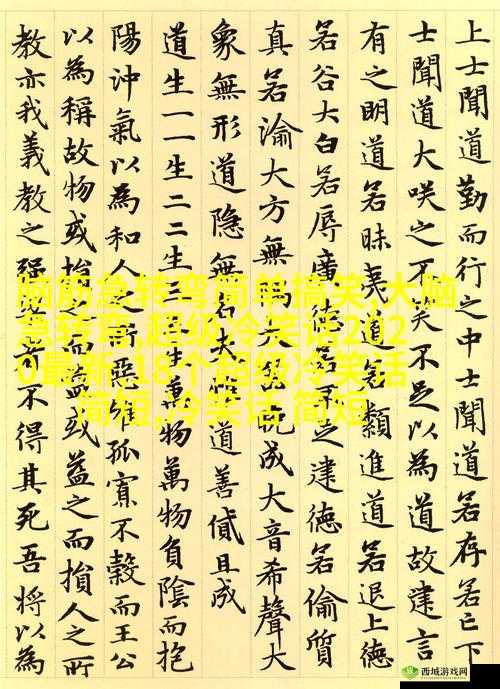 上士聞道勤而行之中士聞道若存若亡下
士聞道大咲之不笑不足以為道故建言
有之明道若昧夷道若類進道若退上德
若谷大白若辱廣德若不足建德若偷質
真若渝大方無隅大器晚成大音希聲大
象無形道隱無名夫唯道善貸且成
道生一一生二二生三三生萬物萬物負陰而抱
陽沖氣以為和人之所惡唯孤寡不穀而王公
以為稱故物或損之而益或益之而損人之所
教亦我義教之强梁者不得其死吾將以為
脑筋急转弯简单搞笑,大脑
急转弯,超级冷笑话202
0最新,18个超级冷笑话
简短,冷笑话 简短
西域游戏网